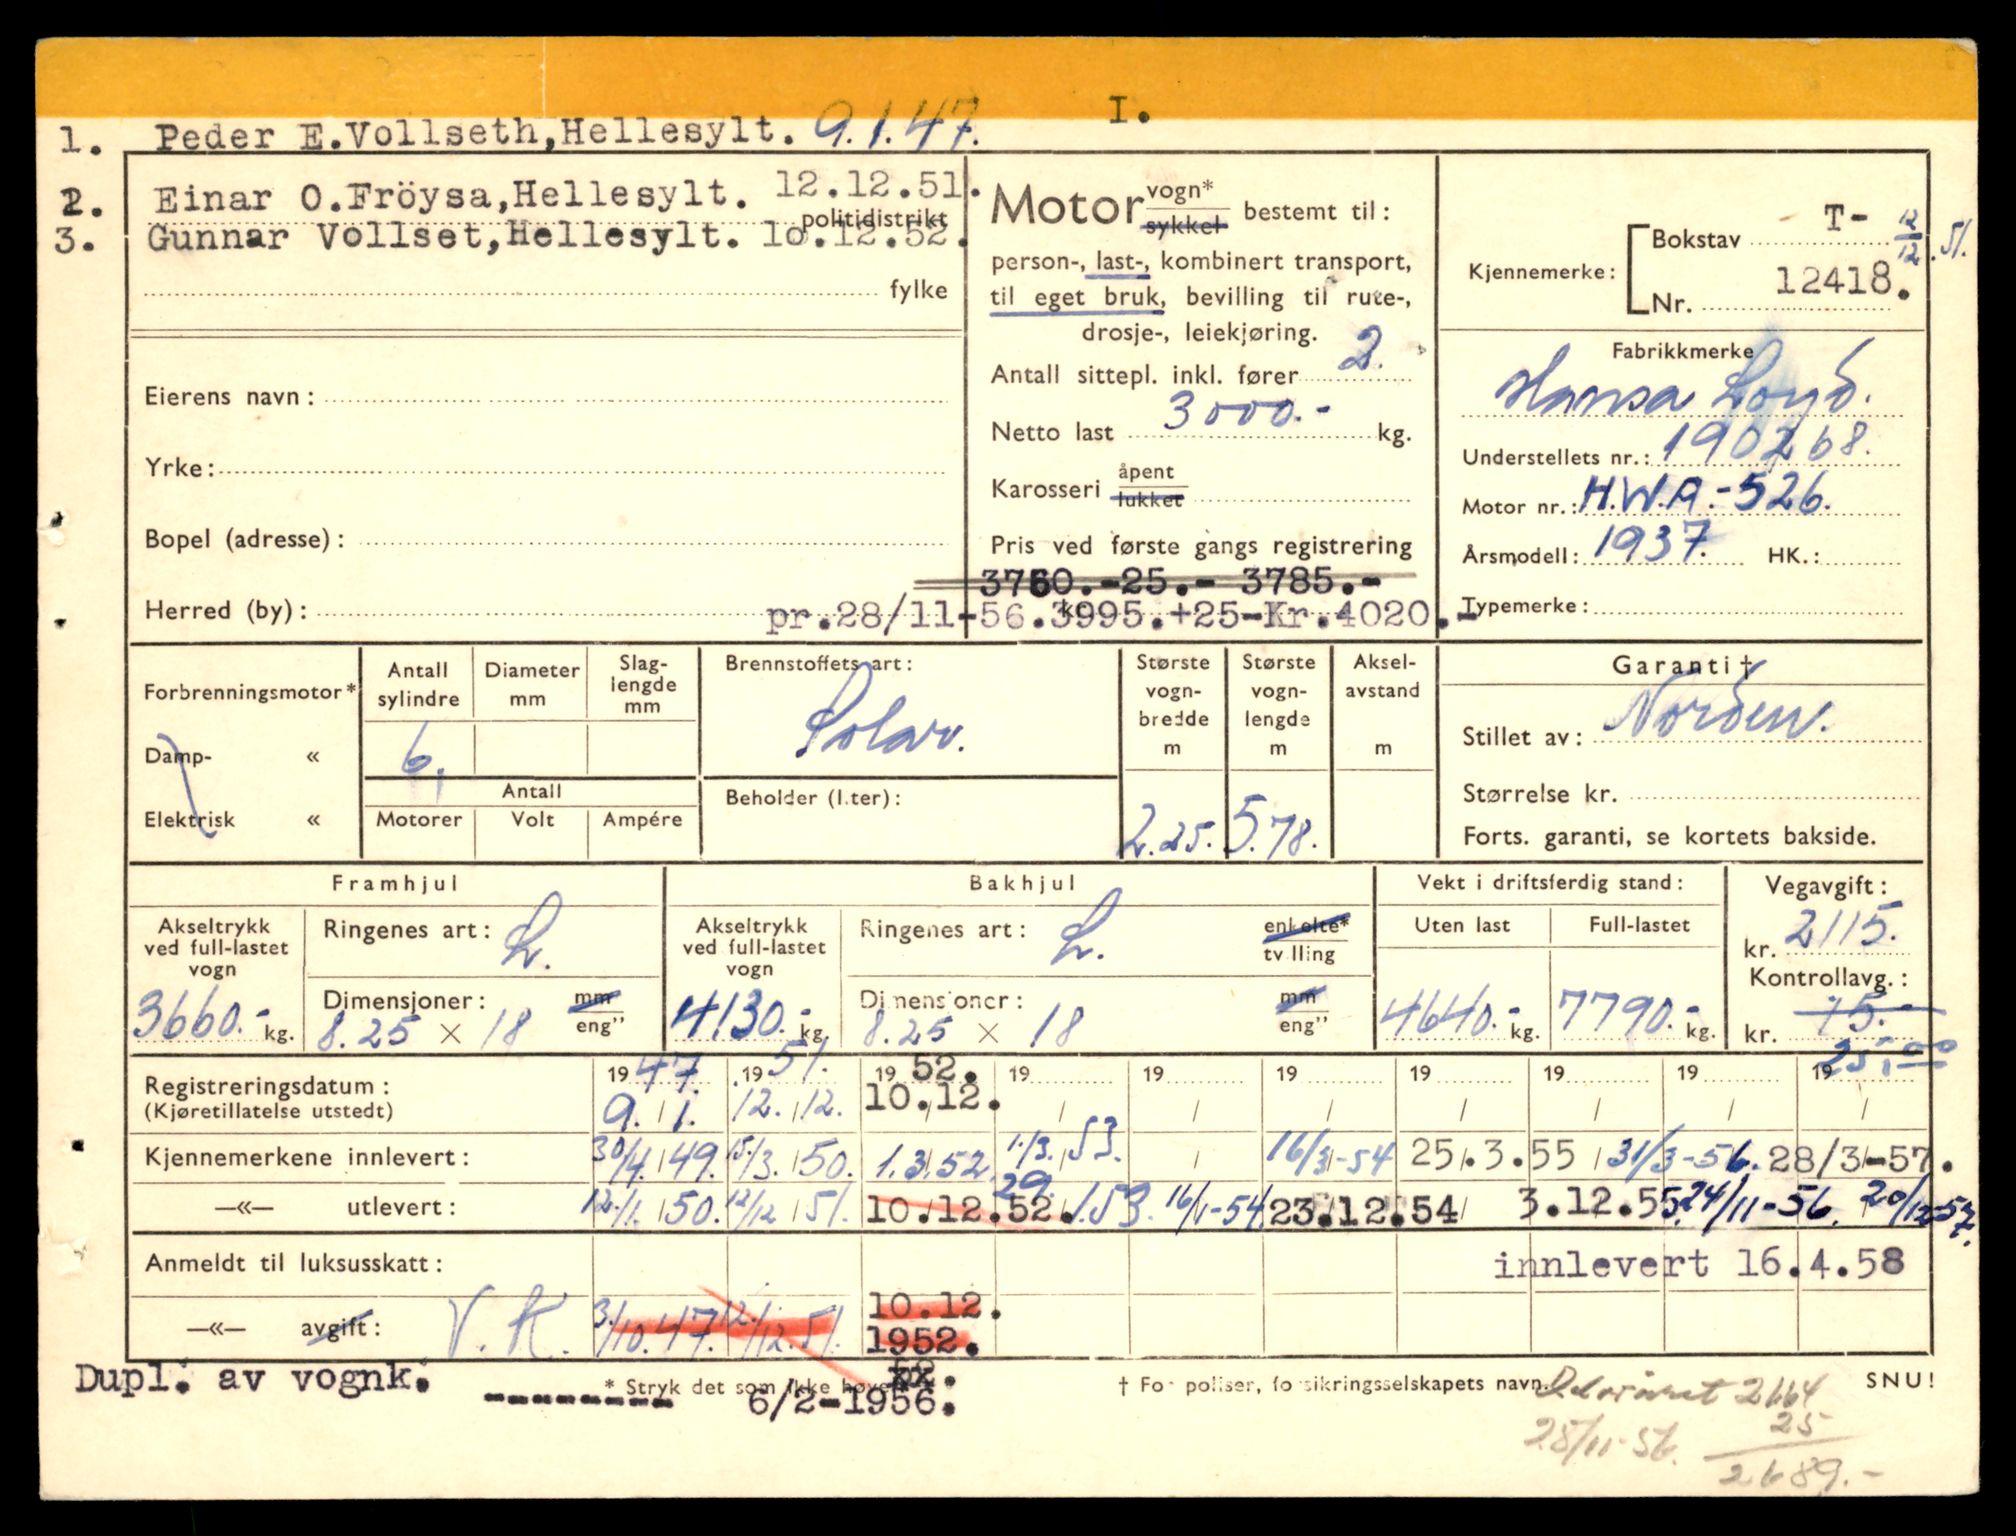 I.
1. Peder E.Vollseth,Hellesylt. 9.1.47.
2. Einar O.Fröysa,Hellesylt. 12.12.51.
politidistrikt
3. Gunnar Vollset,Hellesylt. 10.12.52.
fylke
Eierens navn:
Yrke:
Bopel (adresse):
Herred (by):
Motor vogn* sykkel bestemt til:
person-, last-, kombinert transport,
til eget bruk, bevilling til rute-,
drosje-, leiekjøring.
Antall sittepl. inkl. fører 2.
Netto last 3000.- kg.
Karosseri åpent lukket
Pris ved første gangs registrering
3760.-25.- 3785.-
pr.28/11-56.3995.+25-Kr.4020.-
Kjennemerke: Bokstav T- 12/12.51.
Nr. 12418.
Fabrikkmerke
Hansa Loyd.
Understellets nr.: 190268.
Motor nr.: H.W.A.-526.
Årsmodell: 1937. HK.:
Typemerke:
Forbrenningsmotor*
Damp- «
Elektrisk «
Antall sylindre Diameter mm Slag-lengde mm
6.
Antall
Motorer Volt Ampére
Brennstoffets art:
Solar.
Beholder (liter):
Største vogn-bredde m
2.25.
Største vogn-lengde m
5.78.
Aksel-avstand m
Garanti †
Stillet av: Norden.
Størrelse kr.
Forts. garanti, se kortets bakside.
Framhjul
Akseltrykk ved full-lastet vogn
3660.- kg.
Ringenes art: L.
Dimensjoner: mm eng”
8.25 × 18
Bakhjul
Akseltrykk ved full-lastet vogn
4130.- kg.
Ringenes art: L. enkelte* tvilling
Dimensjoner: mm eng”
8.25 × 18
Vekt i driftsferdig stand:
Uten last Full-lastet
4640.- kg. 7790.- kg.
Vegavgift:
kr. 2115.
Kontrollavg.:
kr. 15.-
25,00
Registreringsdatum: 1947. 1951. 1952. 19 19 19 19 19 19 19
(Kjøretillatelse utstedt) 9./1. 12./12. 10.12.
Kjennemerkene innlevert: 30/4.49. 15/3.50. 1.3.52. 1/3.53. 16/3-54 25.3.55 31/3-56. 28/3-57.
—«— utlevert: 12/1.50. 12/12 51. 10.12.52. 29./1.53. 16/1-54 23.12.54 3.12.55. 24/11-56. 20/12-57.
Anmeldt til luksusskatt: innlevert 16.4.58
—«— avgift: V.K. 3/10.47. 12/12.51. 10.12. 1952.
Dupl. av vognk.
* Stryk det som ikke høver.
6/2-1956.
† For poliser, forsikringsselskapets navn. SNU!
2664
25
28/11-56. 2689.-